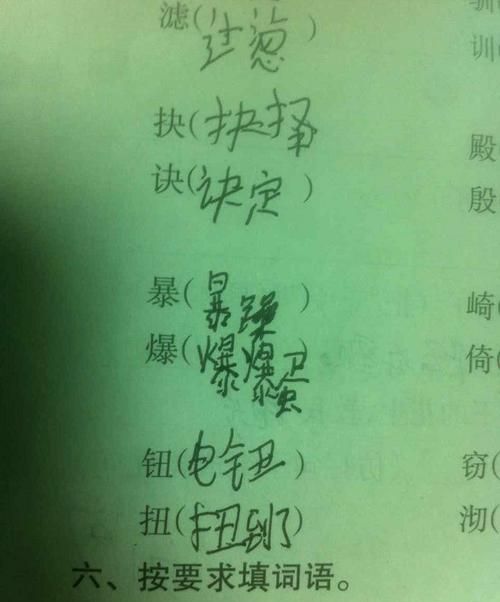 滤(过滤) 驯
训
抉(抉择) 殿
诀(诀定) 殷
暴(暴躁) 崎(
爆(爆爆蛋) 倚(
钮(电钮) 窃(
扭(扭到了) 沏(
六、按要求填词语。